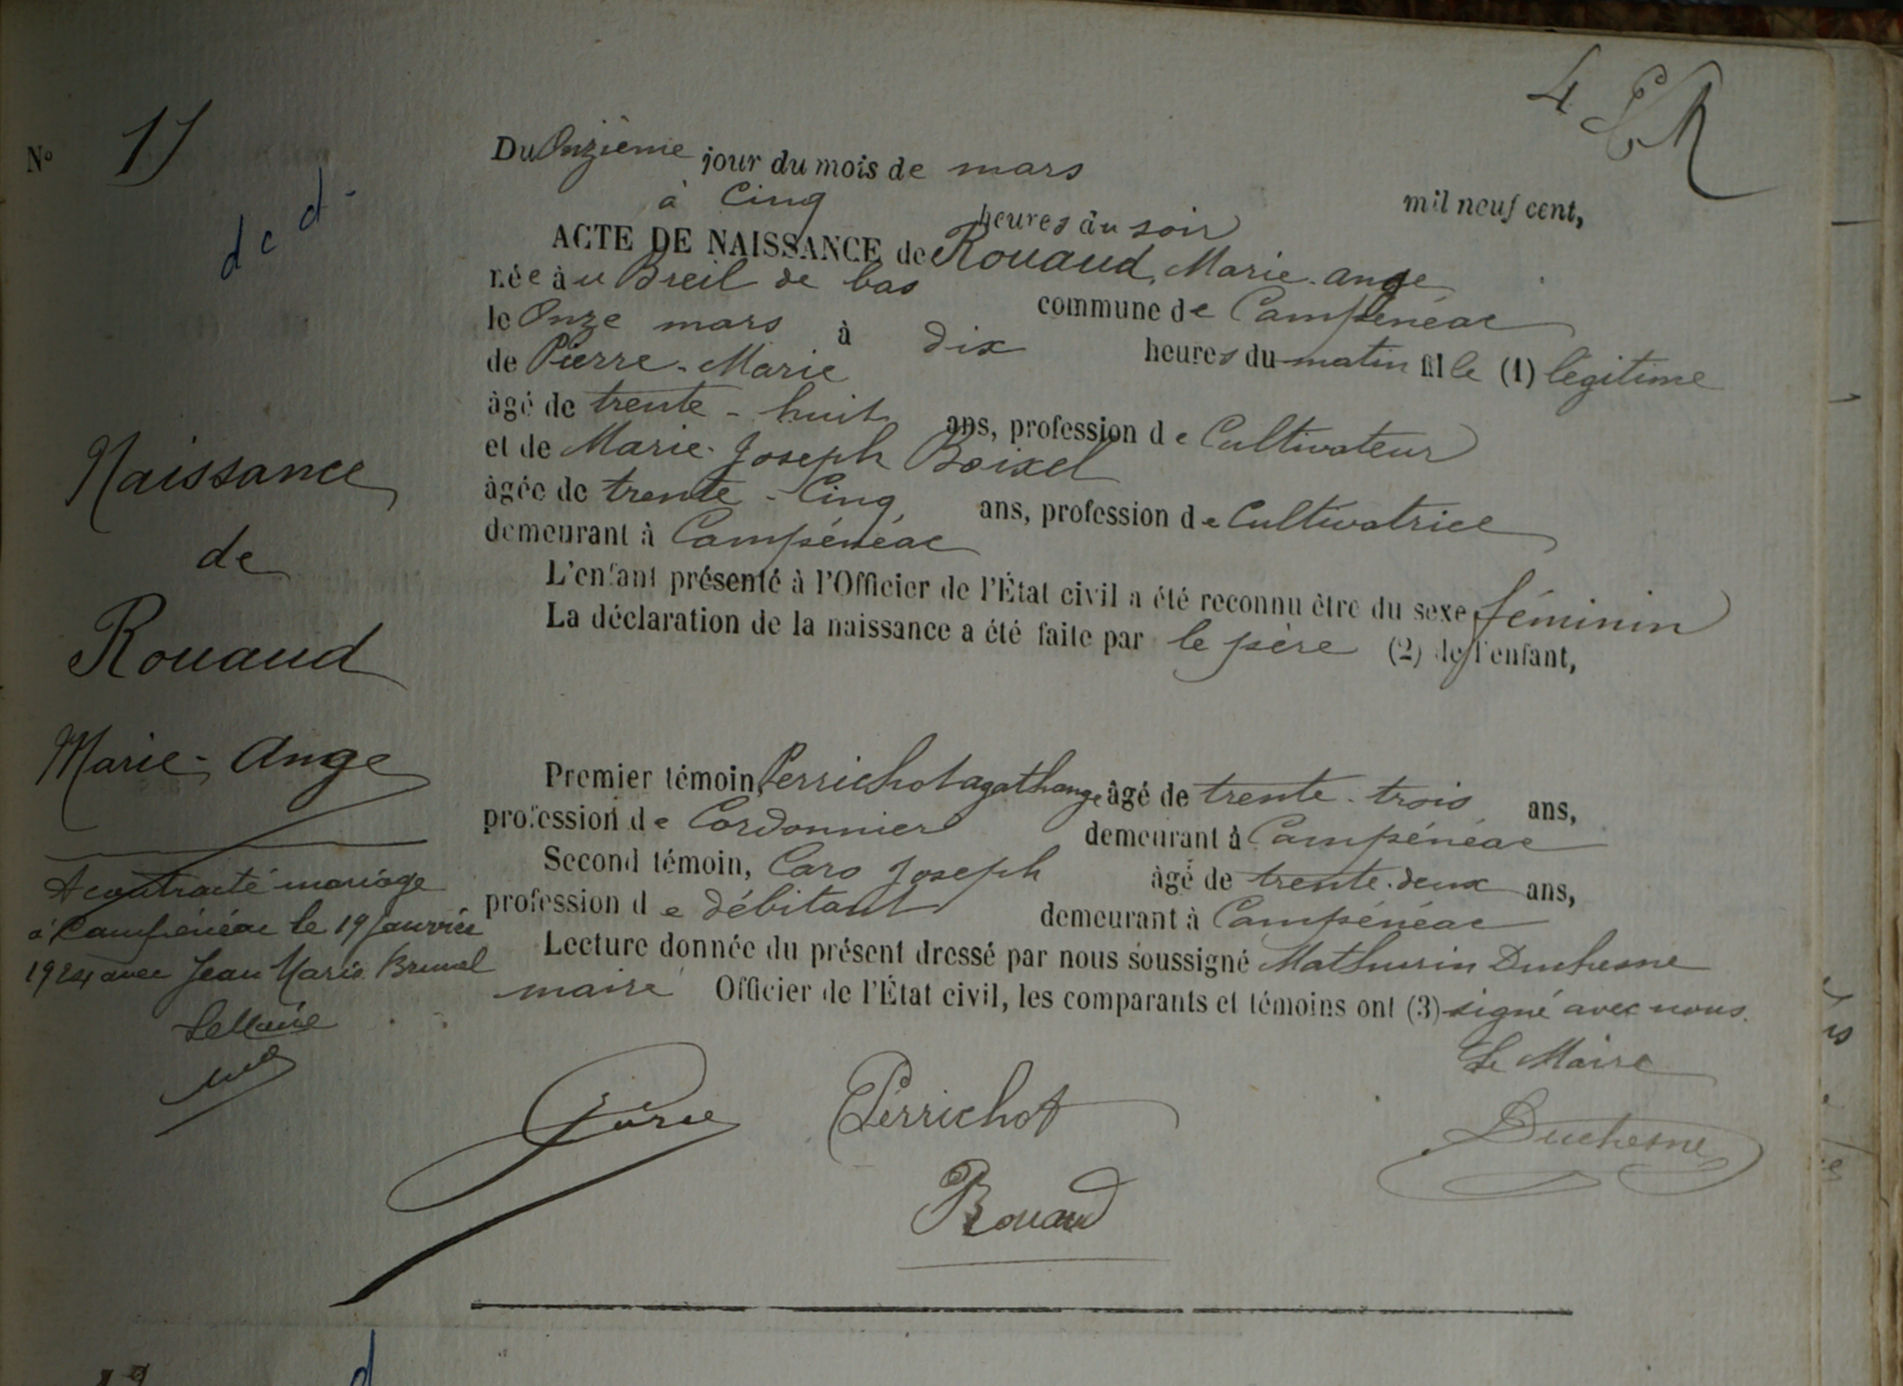 4
N° 11
dcd
Du Onzième jour du mois de mars mil neuf cent,
à Cinq heures du soir
ACTE DE NAISSANCE de Rouaud, Marie-ange
née au Breil de bas commune de Campénéac
le Onze mars à dix heures du matin fille (1) légitime
de Pierre-Marie
âgé de trente-huit ans, profession de Cultivateur
et de Marie-Joseph Boixel
âgée de trente-Cinq ans, profession de Cultivatrice
demeurant à Campénéac
L'enfant présenté à l'Officier de l'État civil a été reconnu être du sexe féminin
La déclaration de la naissance a été faite par le père (2) de l'enfant,
Premier témoin, Perrichot agathange âgé de trente-trois ans,
profession de Cordonnier demeurant à Campénéac
Second témoin, Caro Joseph âgé de trente-deux ans,
profession de débitant demeurant à Campénéac
Lecture donnée du présent dressé par nous soussigné Mathurin Duchesne
maire Officier de l'État civil, les comparants et témoins ont (3) signé avec nous.
Le Maire
Perrichot
Duchesne
Rouaud
Naissance
de
Rouaud
Marie-Ange
A contracté mariage
à Campénéac le 19 Janvier
1924 avec Jean Marie Brunel
Le Maire
d